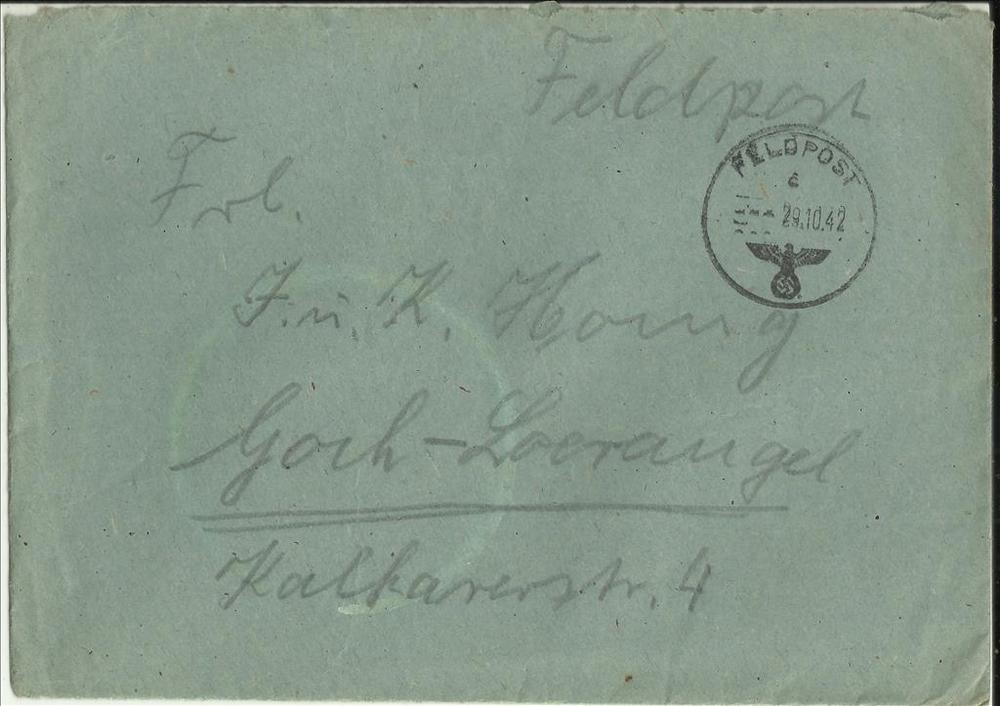 Feldpost
FELDPOST
c
29.10.42
Frl.
J. u. K. Honig
Goch-Loerangel
Kalkarerstr. 4